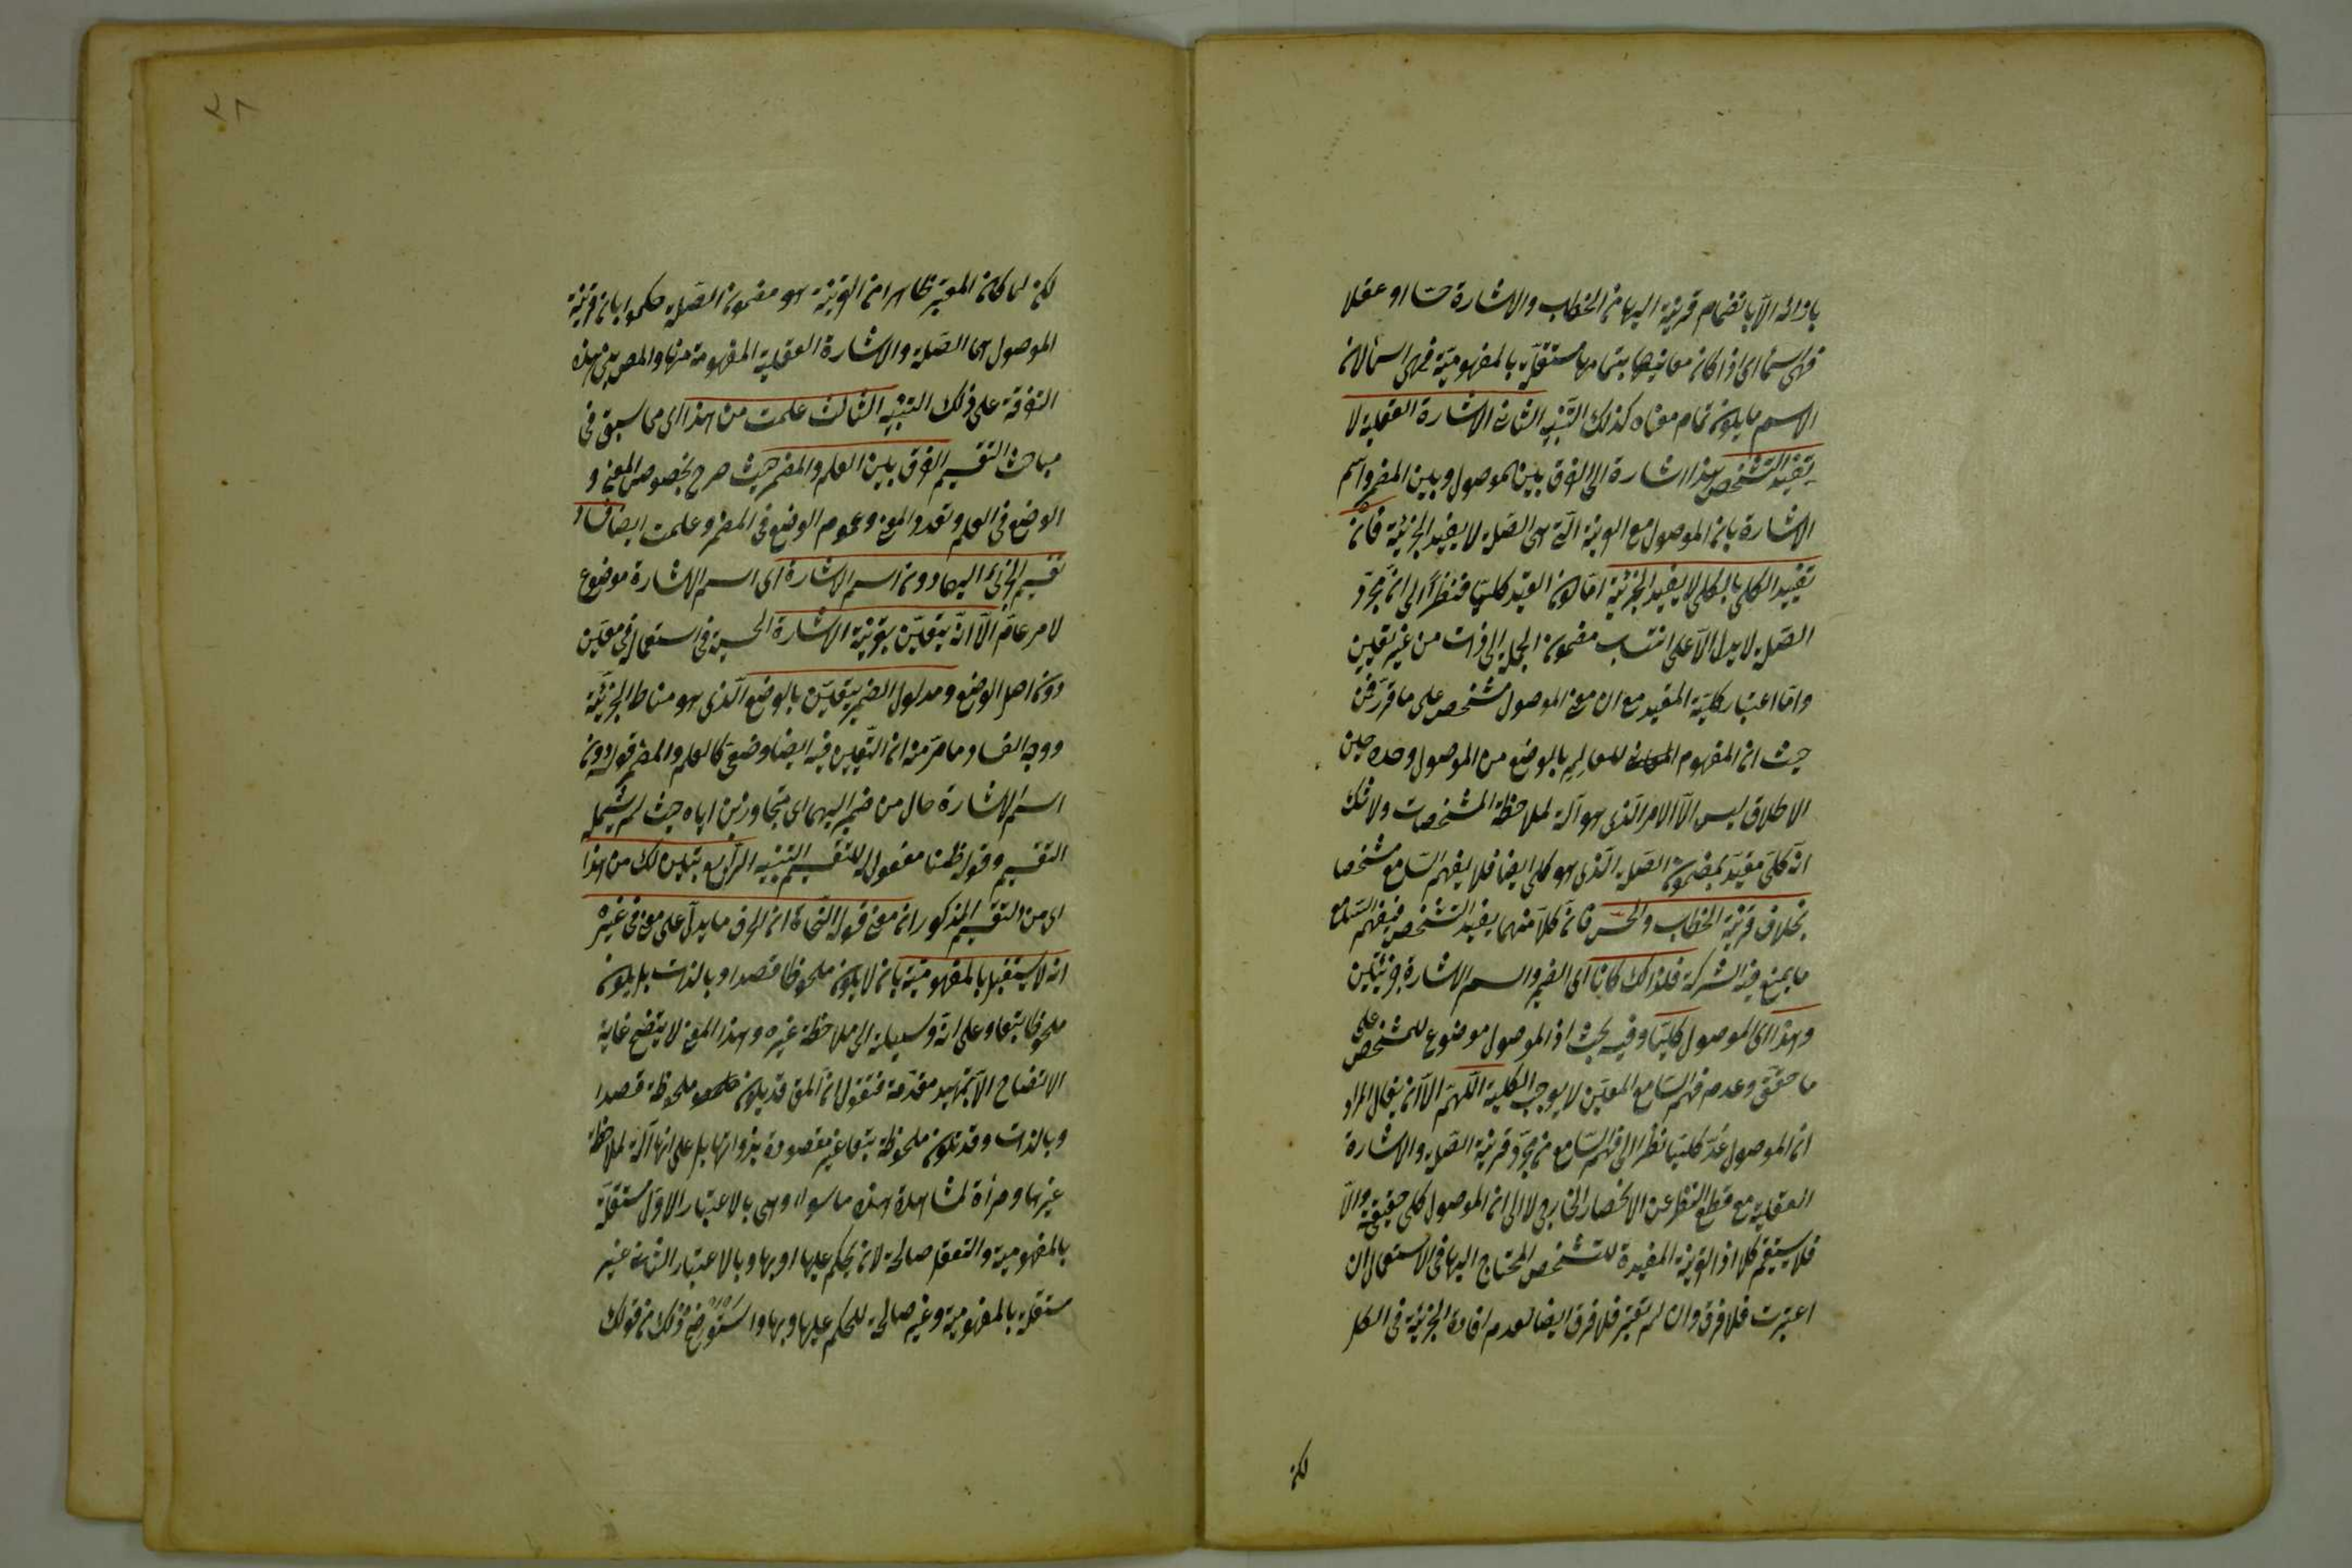 بازائه الا بانضمام قرينة اليها من الخطاب والاشارة حسا او عقلا
فهى اسماء اى اذا كان معانيها بتمامها مستقلة بالمفهومية فهى اسماء لان
الاسم ما يكون تمام معناه كذلك التنبيه الثانى الاشارة العقلية لا
تفيد التشخص هذا اشارة الى الفرق بين الموصول وبين المضمر واسم
الاشارة بان الموصول مع القرينة التى هى الصلة لا يفيد الجزئية فان
تقييد الكلى بالكلى لا يفيد الجزئية اما كون القيد كليا فنظرا الى ان مجرد
الصلة لا يدل الا على انتساب مضمون الجملة الى ذات من غير تعيين
واما اعتبار كلية المقيد مع ان معنى الموصول مشخص على ما قرر فمن
حيث ان المفهوم للعالم بالوضع من الموصول وحده حين
الاطلاق ليس الا الامر الذى هو آلة لملاحظة المشخصات ولا شك
انه كلى مقيد بمضمون الصلة الذى هو كلى ايضا فلا يفهم السامع مشخصا
بخلاف قرينة الخطاب والحس فان كلا منهما يفيد التشخص فيفهم السامع
ما يمنع فيه الشركة فلذلك كانا اى الضمير واسم الاشارة جزئيين
وهذا اى الموصول كليا وفيه بحث اذ الموصول موضوع للمشخص على
ما حقق وعدم فهم السامع المعين لا يوجب الكلية اللهم الا ان يقال المراد
ان الموصول عد كليا نظرا الى فهم السامع من مجرد قرينة الصلة والاشارة
العقلية مع قطع النظر عن الانحصار الخارجى لا الى ان الموصول كلى حقيقة والا
فلا يستقيم كلا اذ القرينة المفيدة للتشخص المحتاج اليها فى الاستعمال ان
اعتبرت فلا فرق وان لم تعتبر فلا فرق ايضا لعدم افادة الجزئية فى الكل
لكن
٢٨
لكن لما كان المعتبر ظاهرا من القرينة هو مضمون الصلة حكموا بان قرينة
الموصول هى الصلة والاشارة العقلية المفهومة منها والمص بنى هذه
التفرقة على ذلك التنبيه الثالث علمت من هذا اى مما سبق فى
مباحث التقسيم الفرق بين العلم والمضمر حيث صرح بخصوص المعنى و
الوضع فى العلم وتعدد المعنى وعموم الوضع فى المضمر وعلمت ايضا فساد
تقسيم الجزئى اليهما دون اسم الاشارة اى اسم الاشارة موضوع
لامر عام الا انه يتعين بقرينة الاشارة الحسية فى استعماله فى معين
دون اصل الوضع ومدلول الضمير يتعين بالوضع الذى هو مناط الجزئية
ووجه الفساد ما مر منه ان التعيين فيه ايضا وضعى كالعلم والمضمر قوله دون
اسم الاشارة حال من ضمير اليهما اى متجاوزين اياه حيث لم يشمله
التقسيم وقوله ظنا مفعول له للتقسيم التنبيه الرابع تبين لك من هذا
اى من التقسيم المذكور ان معنى قول النحاة ان الحرف ما يدل على معنى فى غيره
انه لا يستقل بالمفهومية بان لا يكون ملحوظا قصدا وبالذات بل يكون
ملحوظا تبعا وعلى انه وسيلة الى ملاحظة غيره وهذا المعنى لا يتضح غاية
الاتضاح الا بتمهيد مقدمة فنقول ان المعنى قد يكون ملحوظة قصدا
وبالذات وقد تكون ملحوظة تبعا غير مقصودة بذواتها بل على انها آلة لملاحظة
غيرها ومرأة لمشاهدة هذه ما سواه وهى بالاعتبار الاول مستقلة
بالمفهومية والتعقل صالحة لان يحكم عليها او بها وبالاعتبار الثانى غير
مستقلة بالمفهومية وغير صالحة للحكم عليها وبها واستوضح ذلك من قولك